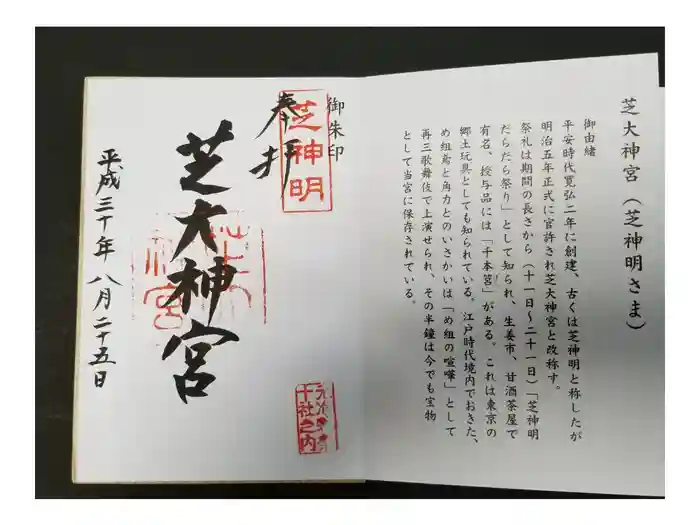 芝大神宮（芝神明さま）
御由緒
平安時代寛弘二年に創建、古くは芝神明と称したが
明治五年正式に官許され芝大神宮と改称す。
祭礼は期間の長さから（十一日～二十一日）「芝神明
だらだら祭り」として知られ、生姜市、甘酒茶屋で
有名、授与品には「千木筥」がある。これは東京の
郷土玩具としても知られている。江戸時代境内でおきた、
め組鳶と角力とのいさかいは「め組の喧嘩」として
再三歌舞伎で上演せられ、その半鐘は今でも宝物
として当宮に保存されている。
御朱印
奉拝
芝神明
芝大神宮
平成三十年八月二十五日
十社之内